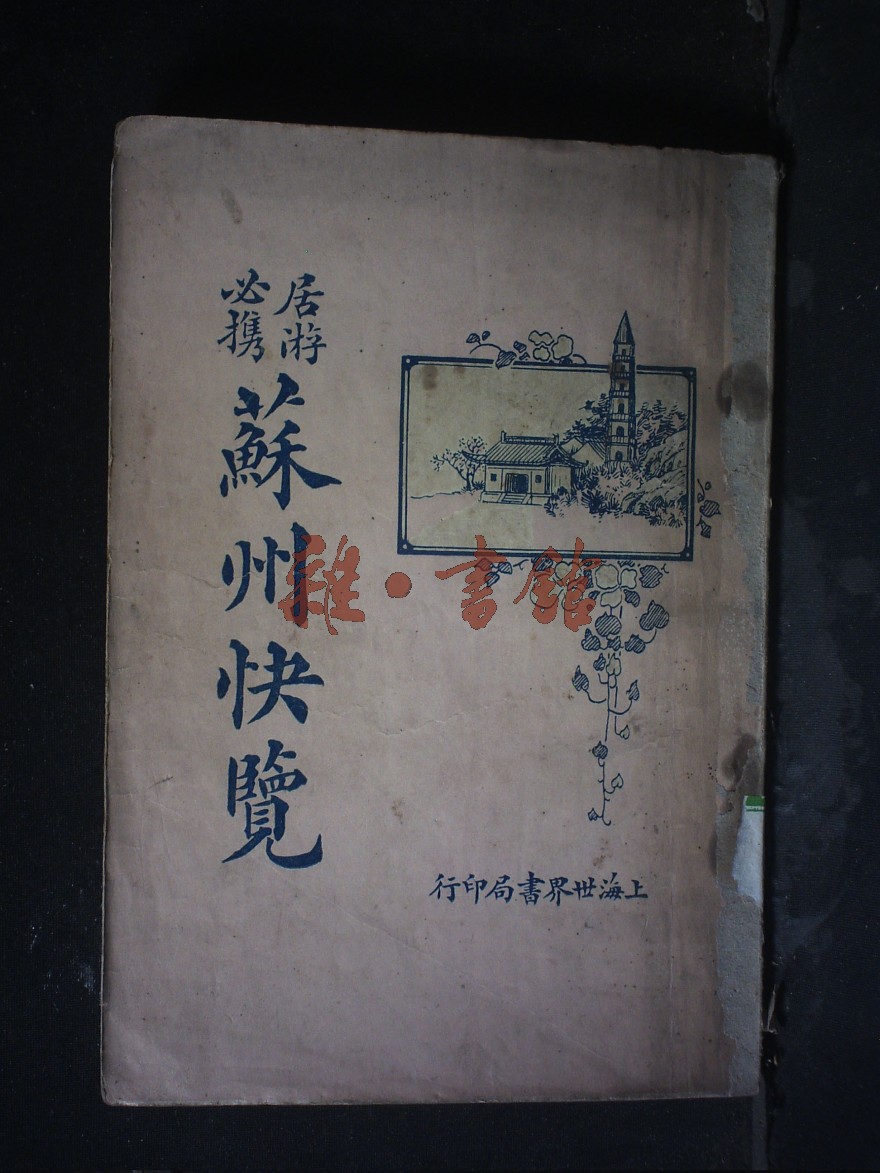 居游
必携
蘇州快覽
上海世界書局印行
雜·書館